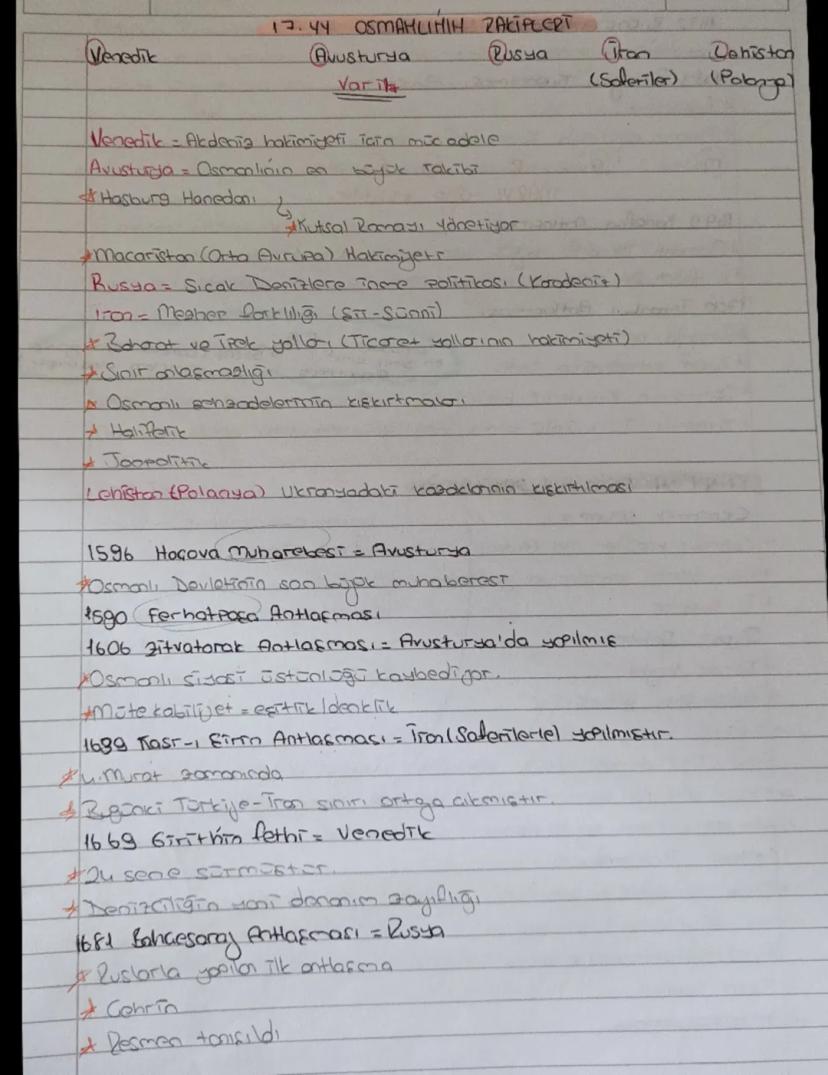 17.YY OSMANLININ RAKİPLERİ
Venedik Avusturya Rusya İran Lehistan
Varil (Safeviler) (Polonya)
Venedik = Akdeniz hakimiyeti icin mücadele
Avusturya = Osmanlının en büyük rakibi
* Hasburg Hanedanı
* Kutsal Romayı Yönetiyor
* Macaristan (Orta Avrupa) Hakimiyeti
Rusya = Sıcak Denizlere inme politikası (Karadeniz)
İran = Mezhep farklılığı (Şii-Sünni)
* Baharat ve İpek yolları (Ticaret yollarının hakimiyeti)
* Sınır anlaşmazlığı
* Osmanlı şehzadelerinin kışkırtmaları
* Halifelik
* Jeopolitik
Lehistan (Polanya) Ukranyadaki kazaklarının kışkırtılması
1596 Haçova Muharebesi = Avusturya
* Osmanlı Devletinin son büyük muhaberesi
1590 Ferhatpaşa Antlaşması
1606 Zitvatorak Antlaşması = Avusturya'da yapılmış
* Osmanlı siyasi üstünlüğü kaybediyor.
* Mütekabiliyet = eşitlik / denklik
1639 Kasr-ı Şirin Antlaşması = İran (Safevilerle) yapılmıştır.
* 4. Murat zamanında
* Bugünki Türkiye-İran sınırı ortaya çıkmıştır.
1669 Girit'nin fethi = Venedik
* 24 sene sürmüştür.
* Denizciliğin yani donanım zayıflığı
1681 Bahçesaray Antlaşması = Rusya
* Ruslarla yapılan ilk antlaşma
* Cehrin
* Resmen tanışıldı